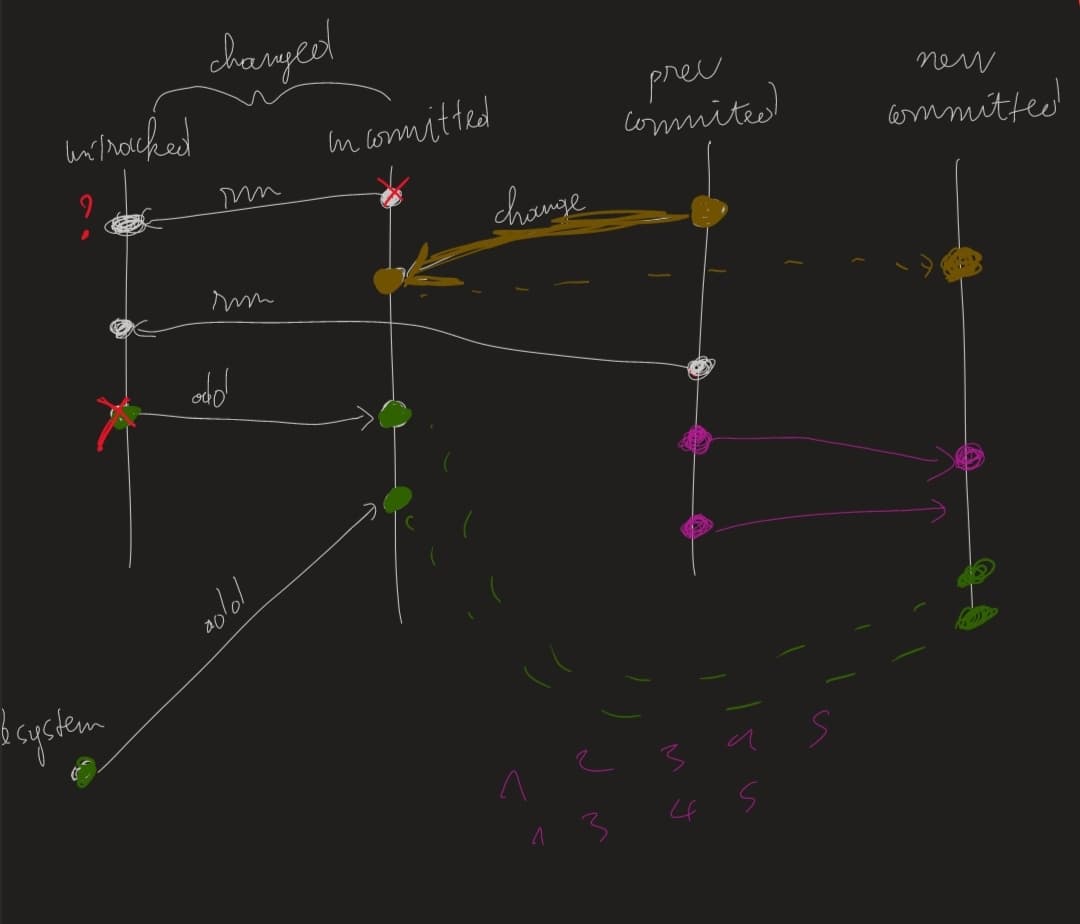 changed
untracked
uncommitted
prev
commited
new
committed
?
rm
change
rm
add
add
system
1 2 3 4 5
1 3 4 5